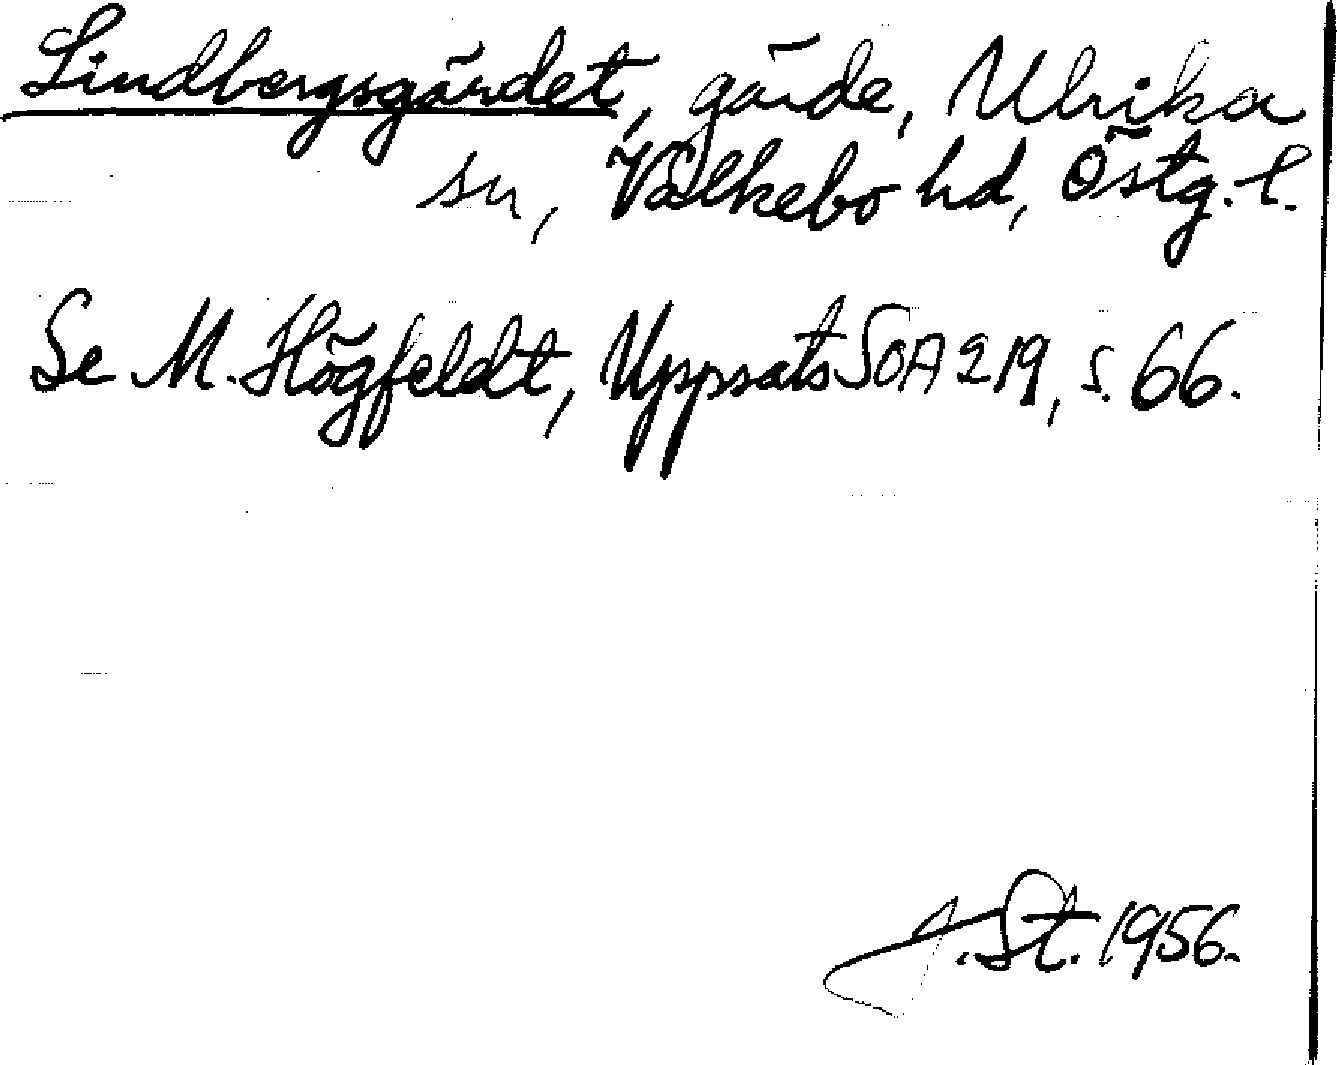 Lindbergsgärdet, gärde, Ulrika
sn, Valkebo hd, Östg. l.
Se M. Högfeldt, Uppsats SOA 219, s. 66.
J. St. 1956.